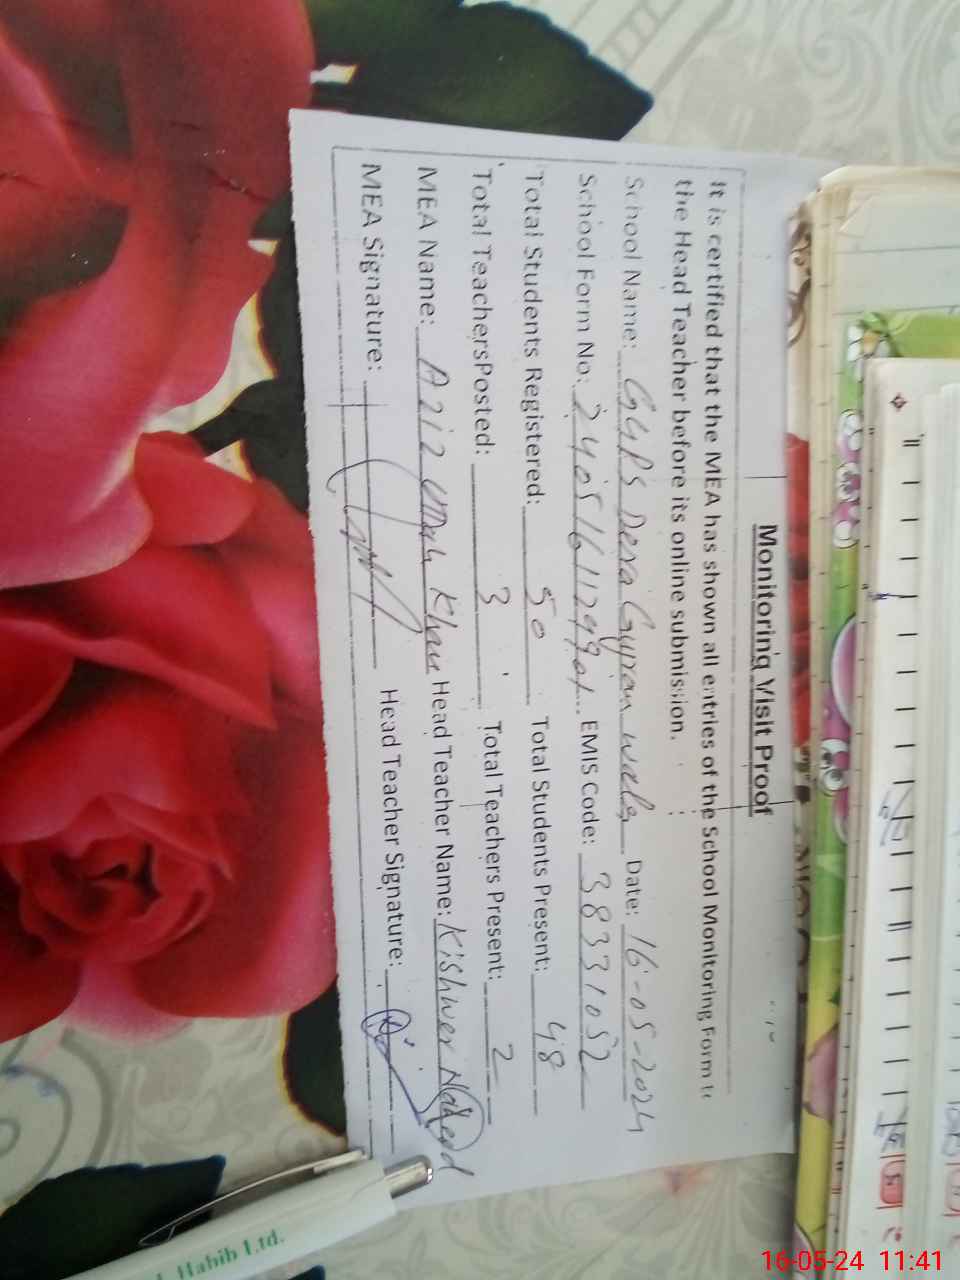 Monitoring Visit Proof
It is certified that the MEA has shown all entries of the School Monitoring Form to
the Head Teacher before its online submission.
School Name: GGPS Dera Gujran wala Date: 16-05-2024
School Form No: 2405161129901 EMIS Code: 38331052
Total Students Registered: 50 Total Students Present: 48
Total TeachersPosted: 3 Total Teachers Present: 2
MEA Name: Aziz Ullah Khan Head Teacher Name: Kishwer
MEA Signature: Head Teacher Signature:
Habib Ltd.
16-05-24 11:41